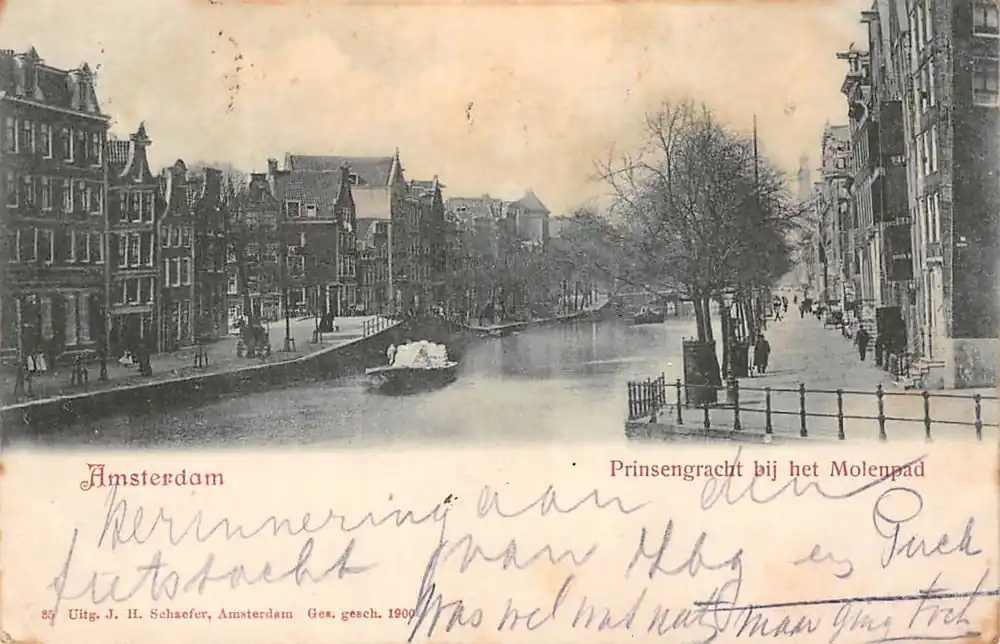 Amsterdam
Prinsengracht bij het Molenpad
herinnering aan den
fietstocht van Hbg en Puck
Was wel wat nat, maar ging toch
85 Uitg. J. H. Schaefer, Amsterdam Ges. gesch. 1900